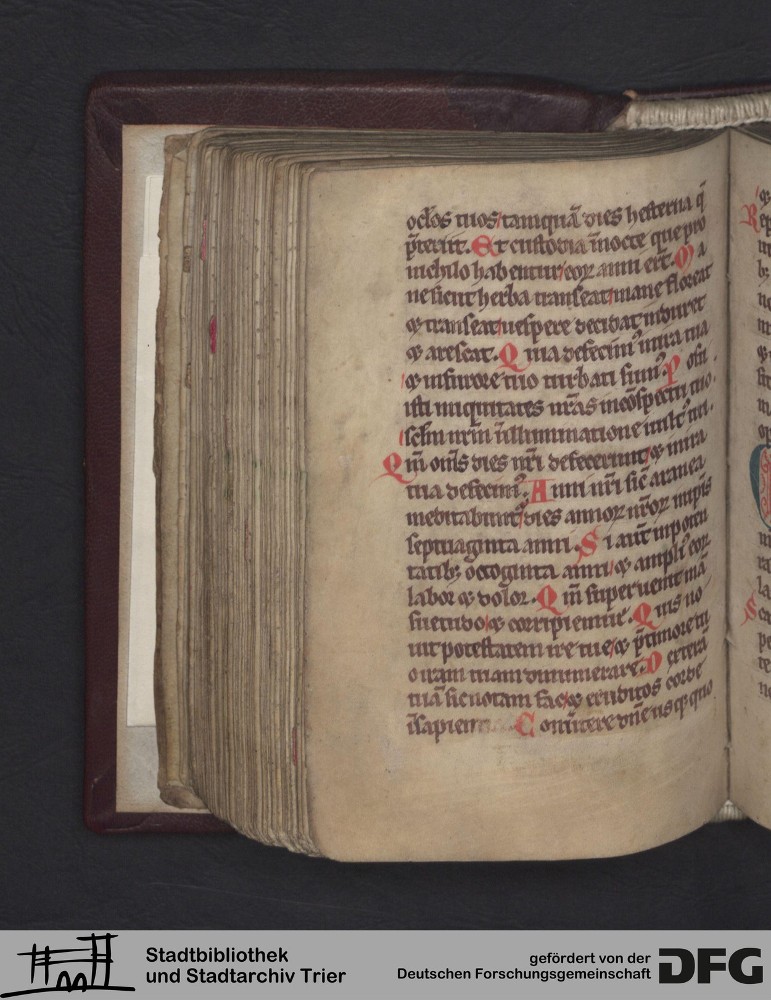 oclos tuos tamquā dies hesterna q̄
p̄teriit. Et custodia ī nocte que pro
nichilo habentur eoꝝ anni erūt. Ma
ne sicut herba transeat mane floreat
⁊ transeat uespere decidat induret
⁊ arescat. Quia defecimꝰ in ira tua
⁊ in furore tuo turbati sumꝰ. Posu
isti iniquitates nr̄as in cōspectu tuo.
sclm̄ nrm̄ ī illuminatione uultꝰ tui.
Qm̄ oms̄ dies nr̄i defecerunt ⁊ in ira
tua defecimꝰ. Anni nr̄i sic̄ aranea
meditabunt᷑ dies annoꝝ nr̄oꝝ in ip̄is
septuaginta anni. Si aut̄ in poten
tatibꝫ octoginta anni ⁊ ampliꝰ eoꝝ
labor ⁊ dolor. Qm̄ superuenit mā
suetudo ⁊ corripiemur. Quis no
uit potestatem ire tue ⁊ p̄ timore tu
o iram tuam dinumerare. Dexterā
tuā sic notam fac ⁊ eruditos corde
ī sapien Conuertere dn̄e usq quo
Stadtbibliothek
und Stadtarchiv Trier
gefördert von der
Deutschen Forschungsgemeinschaft
DFG